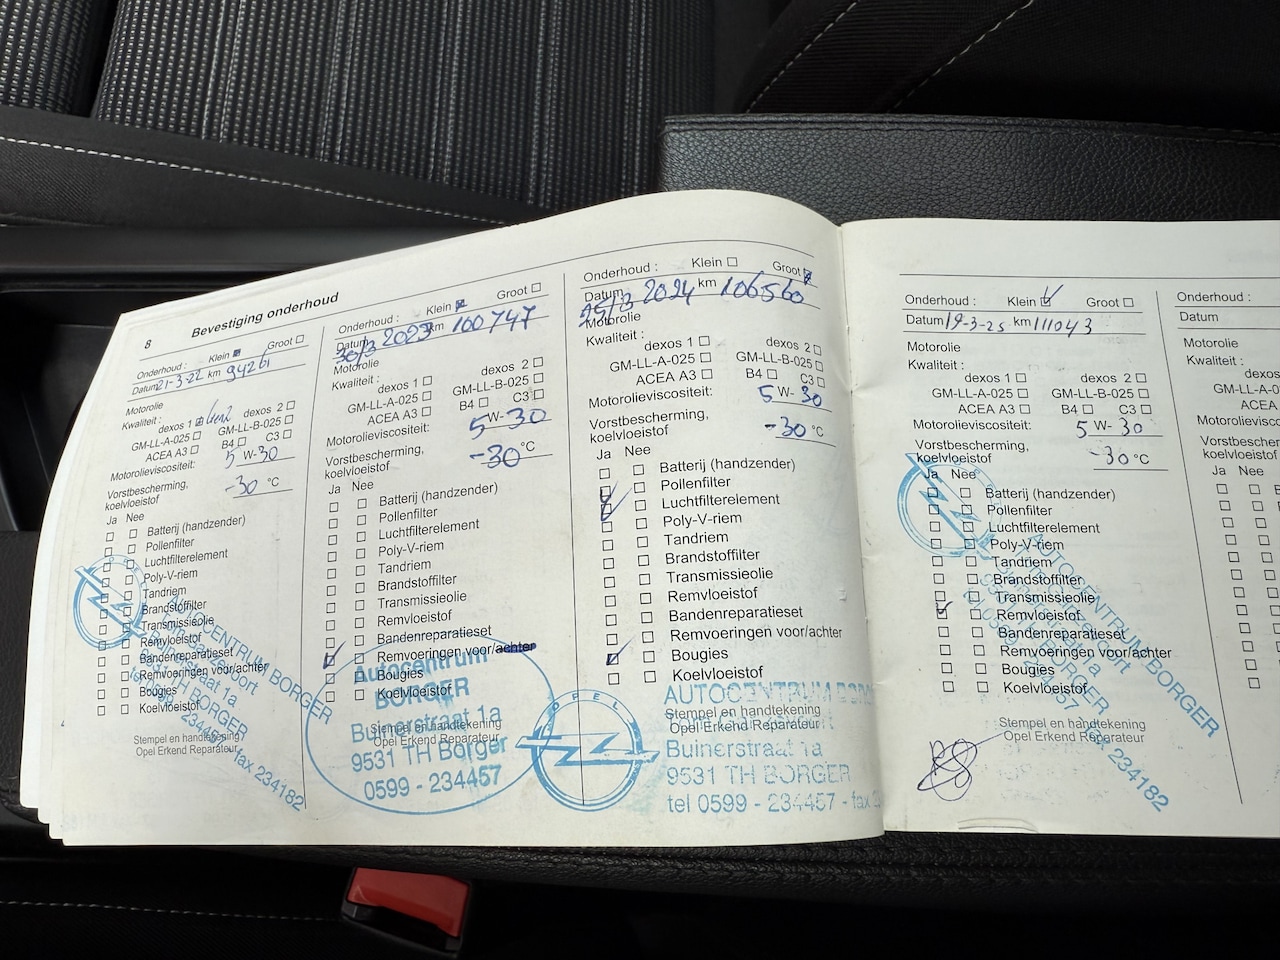 8
Bevestiging onderhoud
Onderhoud : Klein Groot
Datum 21-3-22 km 94261
Motorolie
Kwaliteit : dexos 1 Gen2 dexos 2
GM-LL-A-025 GM-LL-B-025
ACEA A3 B4 C3
Motorolieviscositeit: 5 W-30
Vorstbescherming,
koelvloeistof -30 °C
Ja Nee
Batterij (handzender)
Pollenfilter
Luchtfilterelement
Poly-V-riem
Tandriem
Brandstoffilter
Transmissieolie
Remvloeistof
Bandenreparatieset
Remvoeringen voor/achter
Bougies
Koelvloeistof
Stempel en handtekening
Opel Erkend Reparateur
OPEL
AUTOCENTRUM BORGER
Buinerstraat 1a
9531 TH BORGER
fax 234182
Onderhoud : Klein Groot
Datum 30/3 2023 km 100747
Motorolie
Kwaliteit :
dexos 1 dexos 2
GM-LL-A-025 GM-LL-B-025
ACEA A3 B4 C3
Motorolieviscositeit: 5 W-30
Vorstbescherming,
koelvloeistof -30 °C
Ja Nee
Batterij (handzender)
Pollenfilter
Luchtfilterelement
Poly-V-riem
Tandriem
Brandstoffilter
Transmissieolie
Remvloeistof
Bandenreparatieset
Remvoeringen voor/achter
Bougies
Koelvloeistof
Stempel en handtekening
Opel Erkend Reparateur
Autocentrum
BORGER
Buinerstraat 1a
9531 TH Borger
0599 - 234457
Onderhoud : Klein Groot
Datum 25/3 2024 km 106560
Motorolie
Kwaliteit :
dexos 1 dexos 2
GM-LL-A-025 GM-LL-B-025
ACEA A3 B4 C3
Motorolieviscositeit: 5 W-30
Vorstbescherming,
koelvloeistof -30 °C
Ja Nee
Batterij (handzender)
Pollenfilter
Luchtfilterelement
Poly-V-riem
Tandriem
Brandstoffilter
Transmissieolie
Remvloeistof
Bandenreparatieset
Remvoeringen voor/achter
Bougies
Koelvloeistof
Stempel en handtekening
Opel Erkend Reparateur
OPEL
AUTOCENTRUM
Buinerstraat 1a
9531 TH BORGER
tel 0599 - 234457 - fax
Onderhoud : Klein Groot
Datum 19-3-25 km 111043
Motorolie
Kwaliteit :
dexos 1 dexos 2
GM-LL-A-025 GM-LL-B-025
ACEA A3 B4 C3
Motorolieviscositeit: 5 W-30
Vorstbescherming,
koelvloeistof -30 °C
Ja Nee
Batterij (handzender)
Pollenfilter
Luchtfilterelement
Poly-V-riem
Tandriem
Brandstoffilter
Transmissieolie
Remvloeistof
Bandenreparatieset
Remvoeringen voor/achter
Bougies
Koelvloeistof
Stempel en handtekening
Opel Erkend Reparateur
AUTOCENTRUM BORGER
Buinerstraat 1a
9531 TH BORGER
fax 234182
Onderhoud :
Datum
Motorolie
Kwaliteit :
GM-LL-A-025
ACEA
Motorolieviscositeit:
Vorstbescherming,
koelvloeistof
Ja Nee